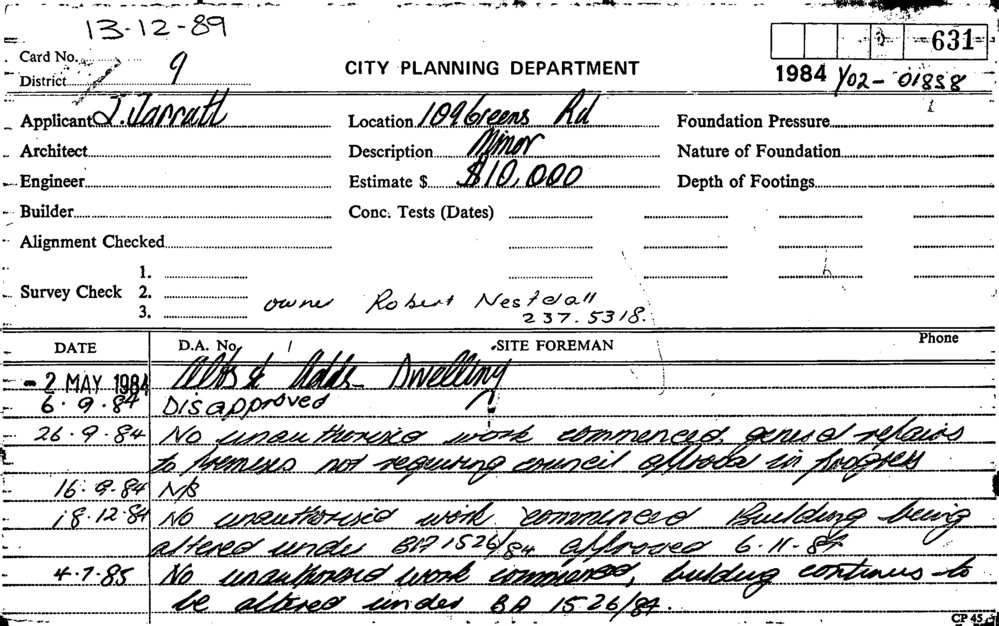 13-12-89
Card No. 9
District
CITY PLANNING DEPARTMENT
631
1984 Y02-01858
Applicant J. Jarratt
Location 109 Greens Rd
Foundation Pressure
Architect
Description Minor
Nature of Foundation
Engineer
Estimate $ $10,000
Depth of Footings
Builder
Conc. Tests (Dates)
Alignment Checked
1.
Survey Check 2.
3.
owner Robert Nestdall
237.5318.
DATE
D.A. No.
SITE FOREMAN
Phone
- 2 MAY 1984 Alts & Adds Dwelling
6.9.84 Disapproved
26.9.84 No unauthorised work commenced, general repairs
to premises not requiring council approval in progress
16.9.84 N/S
18.12.84 No unauthorised work commenced Building being
altered under BA 1526/84 approved 6.11.84
4.7.85 No unauthorised work commenced, building continues to
be altered under BA 1526/84.
CP 45